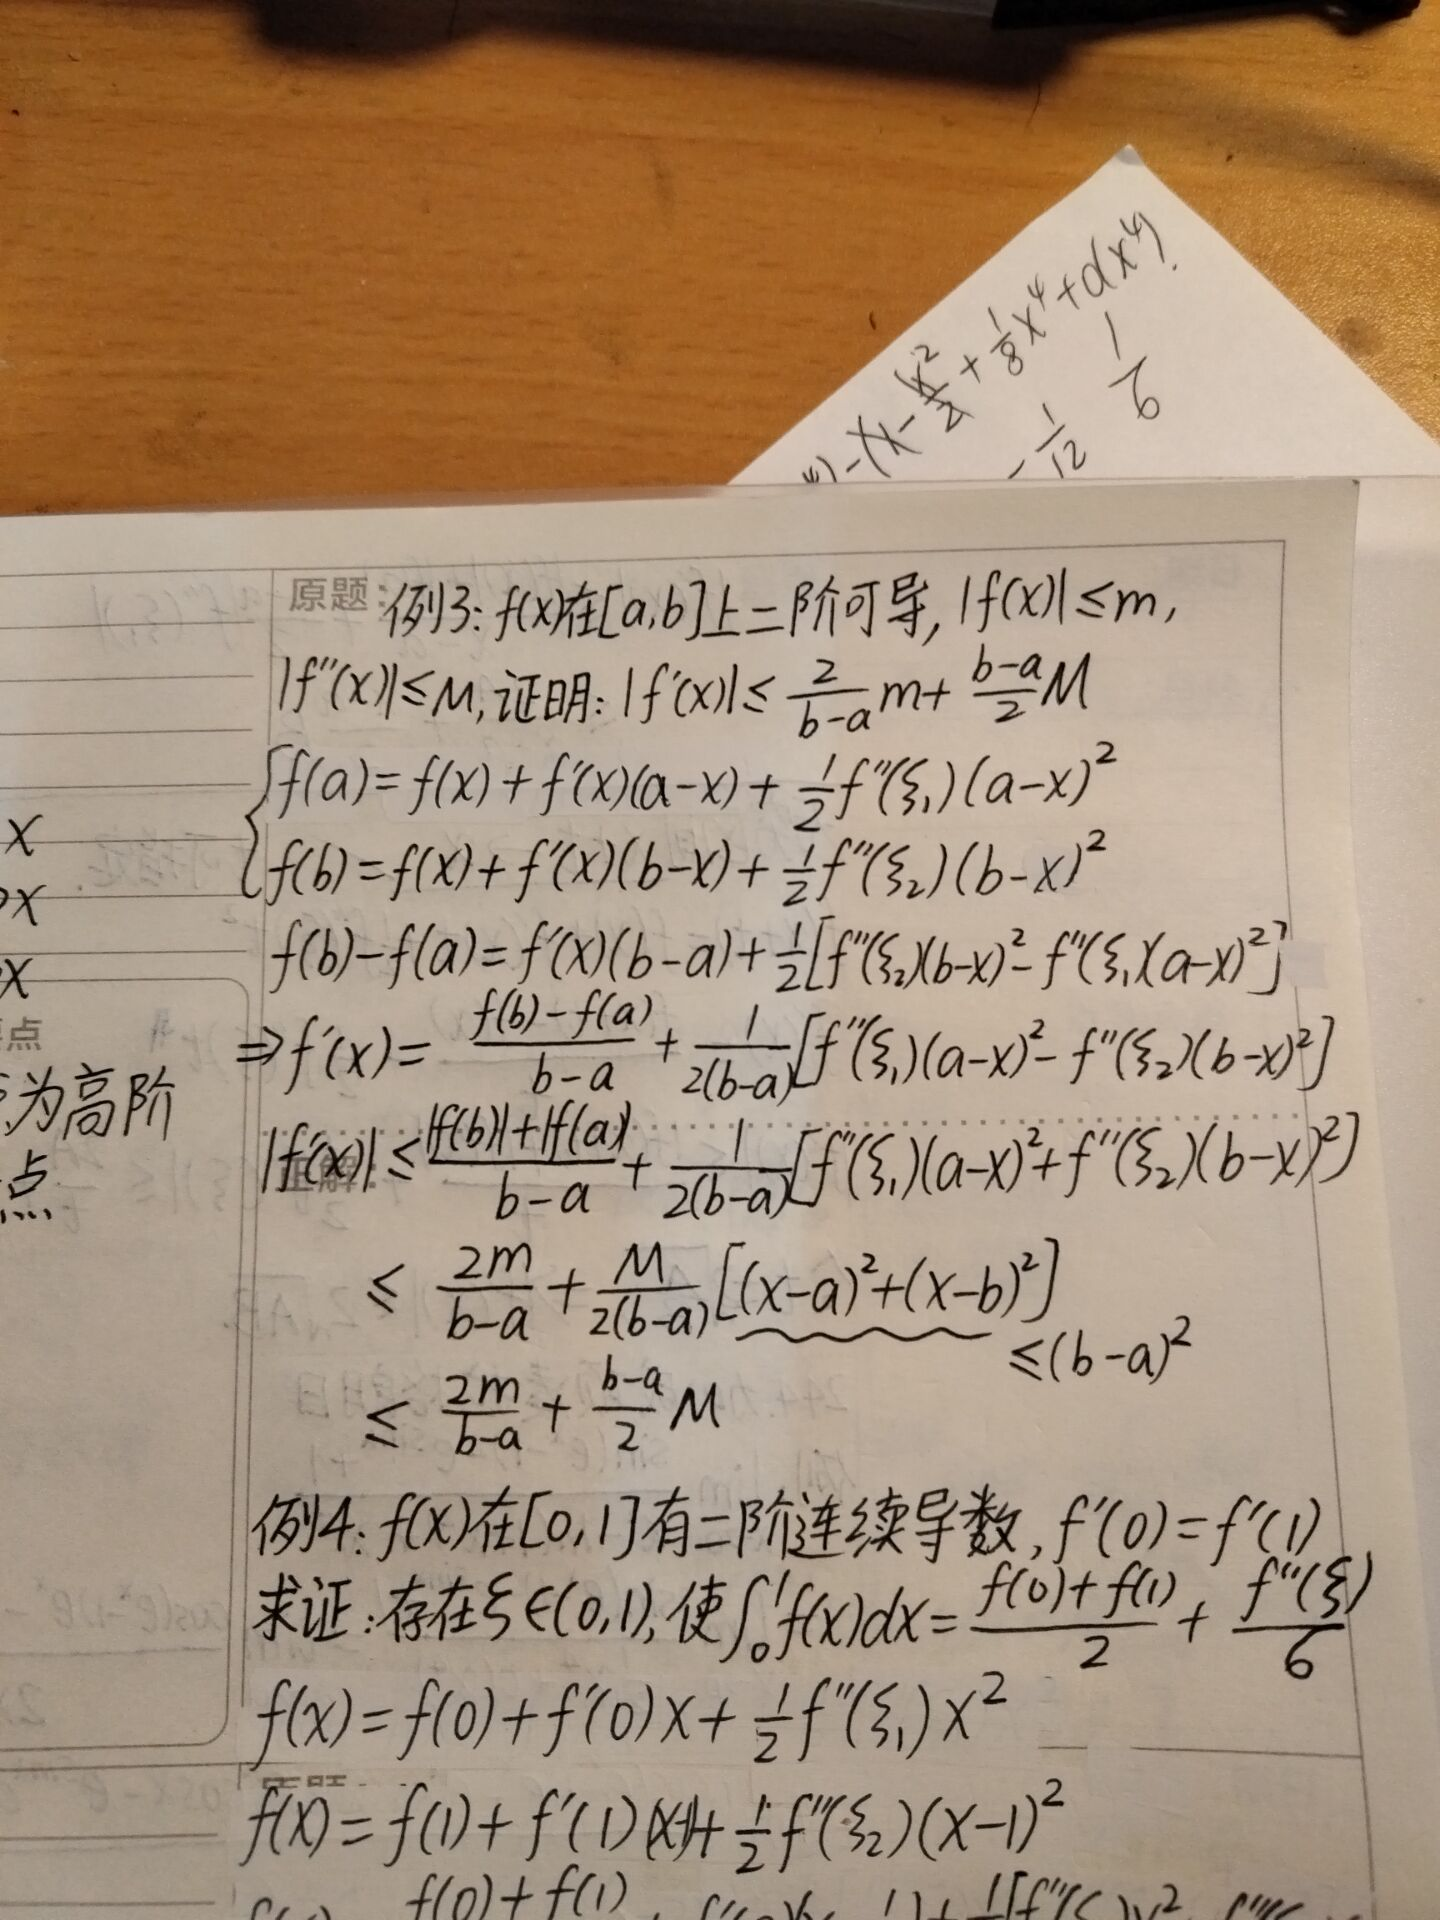 -(x-\frac{x^2}{2}+\frac{1}{8}x^4+o(x^4)
-\frac{1}{12} \frac{1}{6}
原题: 例3: f(x)在[a,b]上二阶可导, |f(x)|≤m,
|f''(x)|≤M, 证明: |f'(x)|≤\frac{2}{b-a}m+\frac{b-a}{2}M
f(a)=f(x)+f'(x)(a-x)+\frac{1}{2}f''(ξ₁)(a-x)²
f(b)=f(x)+f'(x)(b-x)+\frac{1}{2}f''(ξ₂)(b-x)²
f(b)-f(a)=f'(x)(b-a)+\frac{1}{2}[f''(ξ₂)(b-x)²-f''(ξ₁)(a-x)²]
⇒f'(x)=\frac{f(b)-f(a)}{b-a}+\frac{1}{2(b-a)}[f''(ξ₁)(a-x)²-f''(ξ₂)(b-x)²]
|f'(x)|≤\frac{|f(b)|+|f(a)|}{b-a}+\frac{1}{2(b-a)}[f''(ξ₁)(a-x)²+f''(ξ₂)(b-x)²]
≤\frac{2m}{b-a}+\frac{M}{2(b-a)}[(x-a)²+(x-b)²]
≤(b-a)²
≤\frac{2m}{b-a}+\frac{b-a}{2}M
例4: f(x)在[0,1]有二阶连续导数, f'(0)=f'(1)
求证: 存在ξ∈(0,1), 使∫₀¹f(x)dx=\frac{f(0)+f(1)}{2}+\frac{f''(ξ)}{6}
f(x)=f(0)+f'(0)x+\frac{1}{2}f''(ξ₁)x²
f(x)=f(1)+f'(1)(x-1)+\frac{1}{2}f''(ξ₂)(x-1)²
f(0)+f(1)
x
x
x
点
为高阶
点